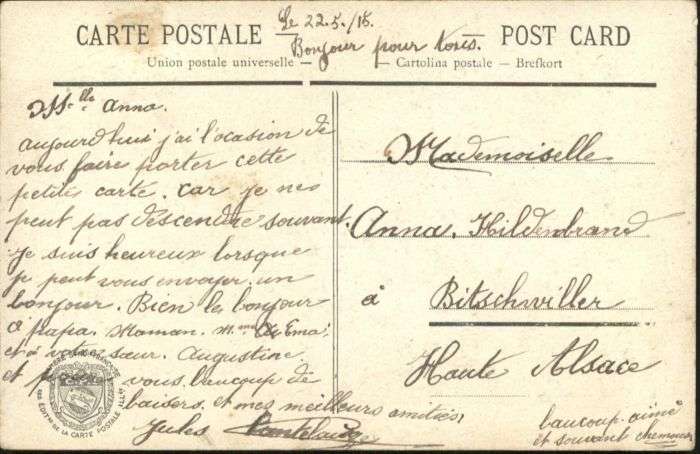 Le 22.5./15.
CARTE POSTALE — POST CARD
Bonjour pour
Union postale universelle — — Cartolina postale – Brefkort
M.elle Anna.
aujourd'hui j'ai l'ocasion de
vous faire porter cette
petite carte. Car je ne
peut pas descendre souvant.
je suis heureux lorsque
je peut vous envoyer un
bonjour. Bien le bonjour
à papa. Maman. M.
et à votre sœur. Augustine
et vous beaucoup de
baisers et mes meilleurs amitiés,
Jules
Mademoiselle
Anna. Hildenbrand
à Bitschwiller
Haute Alsace
beaucoup aimé
et souvant
DE LA CARTE POSTALE